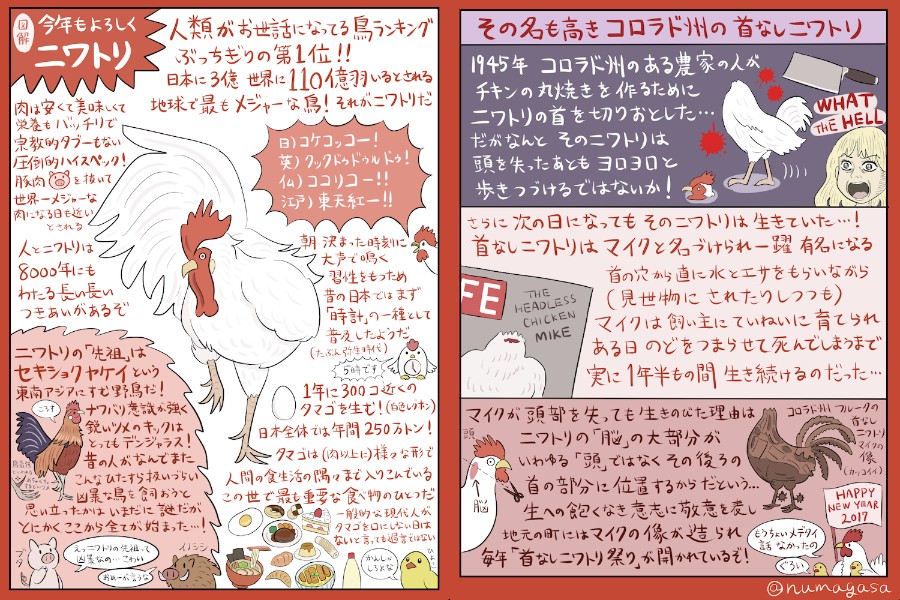 図解
今年もよろしく
ニワトリ
人類がお世話になってる鳥ランキング
ぶっちぎりの第1位!!
日本に3億 世界に110億羽いるとされる
地球で最もメジャーな鳥! それがニワトリだ
肉は安くて美味しくて
栄養もバッチリで
宗教的タブーもない
圧倒的ハイスペック!
豚肉を抜いて
世界一メジャーな
肉になる日も近い
とされる
日)コケコッコー!
英)クックドゥドゥルドゥ!
仏)ココリコー!!
江戸)東天紅ー!!
人とニワトリは
8000年にも
わたる長い長い
つきあいがあるぞ
朝 決まった時刻に
大声で鳴く
習性をもつため
昔の日本ではまず
「時計」の一種として
普及したようだ
(たぶん弥生時代)
5時です
ニワトリの「先祖」は
セキショクヤケイという
東南アジアにすむ野鳥だ!
ころす
ナワバリ意識が強く
鋭いツメのキックは
とってもデンジャラス!
昔の人がなんでまた
こんなひたすら扱いづらい
凶暴な鳥を飼おうと
思い立ったかは いまだに謎だが
とにかくここから全てが始まった…!
ブタ
えっニワトリの先祖って
凶暴なの…こわい
おめーが言うな
イノシシ
1年に300コ近くの
タマゴを生む!(白色レグホン)
日本全体では年間250万トン!
タマゴは(肉以上に)様々な形で
人間の食生活の隅々まで入りこんでいる
この世で最も重要な食べ物のひとつだ
一般的な現代人が
タマゴを口にしない日は
ないと言っても過言ではない
かんしゃ
しろよな
その名も高きコロラド州の首なしニワトリ
1945年 コロラド州のある農家の人が
チキンの丸焼きを作るために
ニワトリの首を切りおとした…
だがなんと そのニワトリは
頭を失ったあとも ヨロヨロと
歩きつづけるではないか!
WHAT
THE HELL
さらに 次の日になっても そのニワトリは生きていた…!
首なしニワトリは マイクと名づけられ一躍 有名になる
FE
THE
HEADLESS
CHICKEN
MIKE
首の穴から直に水とエサをもらいながら
(見世物にされたりしつつも)
マイクは飼い主にていねいに育てられ
ある日 のどをつまらせて死んでしまうまで
実に1年半もの間 生き続けるのだった…
マイクが頭部を失っても生きのびた理由は
ニワトリの「脳」の大部分が
いわゆる「頭」ではなくその後ろの
首の部分に位置するからだという…
生への飽くなき意志に敬意を表し
地元の町にはマイクの像が造られ
毎年「首なしニワトリ祭り」が開かれているぞ!
頭
脳
コロラド州フルータの
首なし
ニワトリ
マイク
の像
(カッコイイ)
HAPPY
NEW YEAR
2017
もうちょいメデタイ
話 なかったの
ぐろい
@numagasa